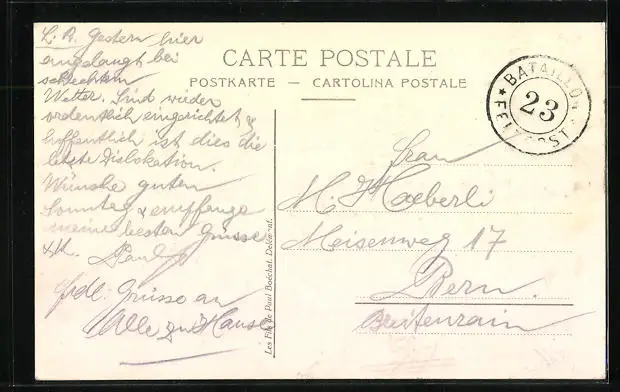 CARTE POSTALE
POSTKARTE — CARTOLINA POSTALE
L. R. Gestern hier
angelangt bei
schlechtem
Wetter. Sind wieder
ordentlich eingerichtet &
hoffentlich ist dies die
letzte Dislokation.
Wünsche guten
Sonntag & empfange
meine besten Grüsse
& K. Paul
frdl. Grüsse an
Alle zu Hause
Les Fils de Paul Boéchat, Delémont.
BATAILLON
23
FELDPOST
Frau
M. Haeberli
Meisenweg 17
Bern.
Breitenrain